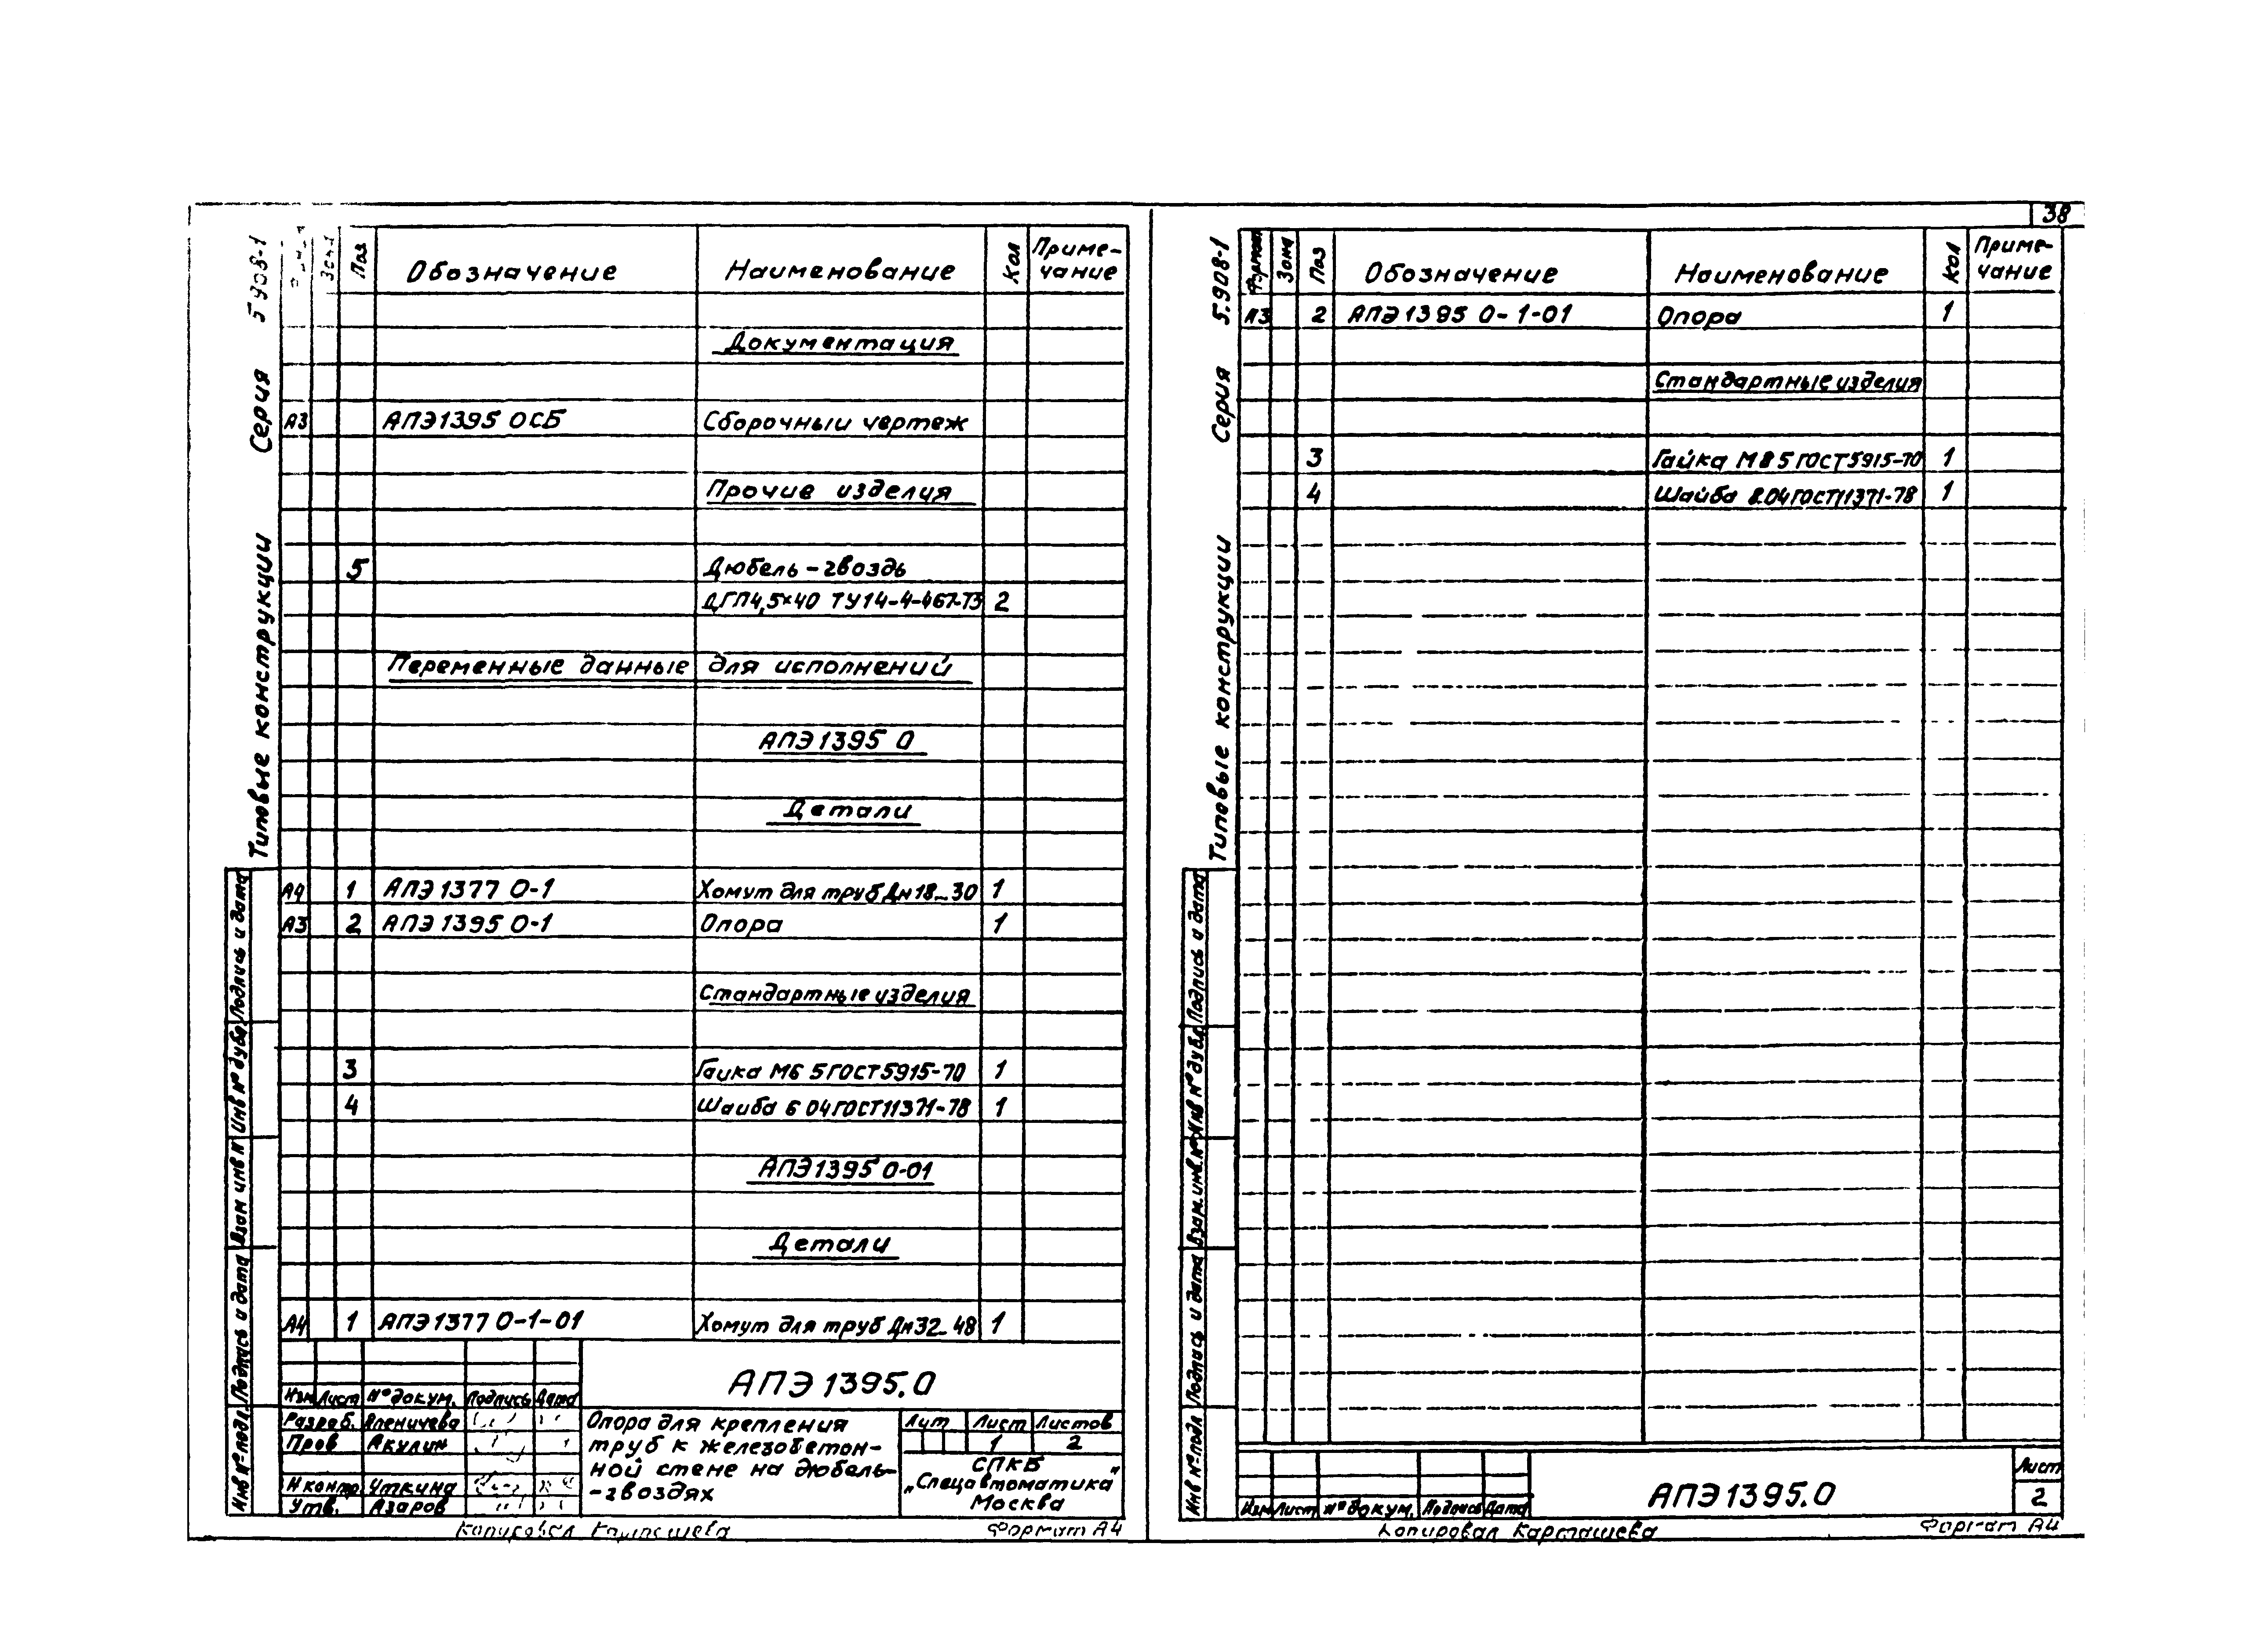 38
Типовые конструкции Серия 5.908-1
Поз Обозначение Наименование Кол Приме-
чание
Документация
А3 АПЭ1395 ОСБ Сборочный чертеж
Прочие изделия
5 Дюбель-гвоздь
ДГП4,5×40 ТУ14-4-467-73 2
Переменные данные для исполнений
АПЭ1395 0
Детали
А4 1 АПЭ1377 0-1 Хомут для труб Дн18...30 1
А3 2 АПЭ1395 0-1 Опора 1
Стандартные изделия
3 Гайка М6 5 ГОСТ5915-70 1
4 Шайба 6 04 ГОСТ11371-78 1
АПЭ1395 0-01
Детали
А4 1 АПЭ1377 0-1-01 Хомут для труб Дн32...48 1
АПЭ1395.0
Изм Лист № докум. Подпись Дата
Разраб. Аленичева
Пров Акулин
Н контр Уткина
Утв. Азаров
Опора для крепления
труб к железобетон-
ной стене на дюбель-
-гвоздях
Лит Лист Листов
1 2
СПКБ
„Спецавтоматика"
Москва
Инв № подл. Подпись и дата Взам инв № Инв № дубл Подпись и дата
Копировал Карташева Формат А4
Типовые конструкции Серия 5.908-1
Формат Зона Поз Обозначение Наименование Кол Приме-
чание
А3 2 АПЭ1395 0-1-01 Опора 1
Стандартные изделия
3 Гайка М8 5 ГОСТ5915-70 1
4 Шайба 8.04 ГОСТ11371-78 1
Инв № подл Подпись и дата Взам. инв. № Инв № дубл Подпись и дата
Изм Лист № докум. Подпись Дата
АПЭ1395.0
Лист
2
Копировал Карташева Формат А4